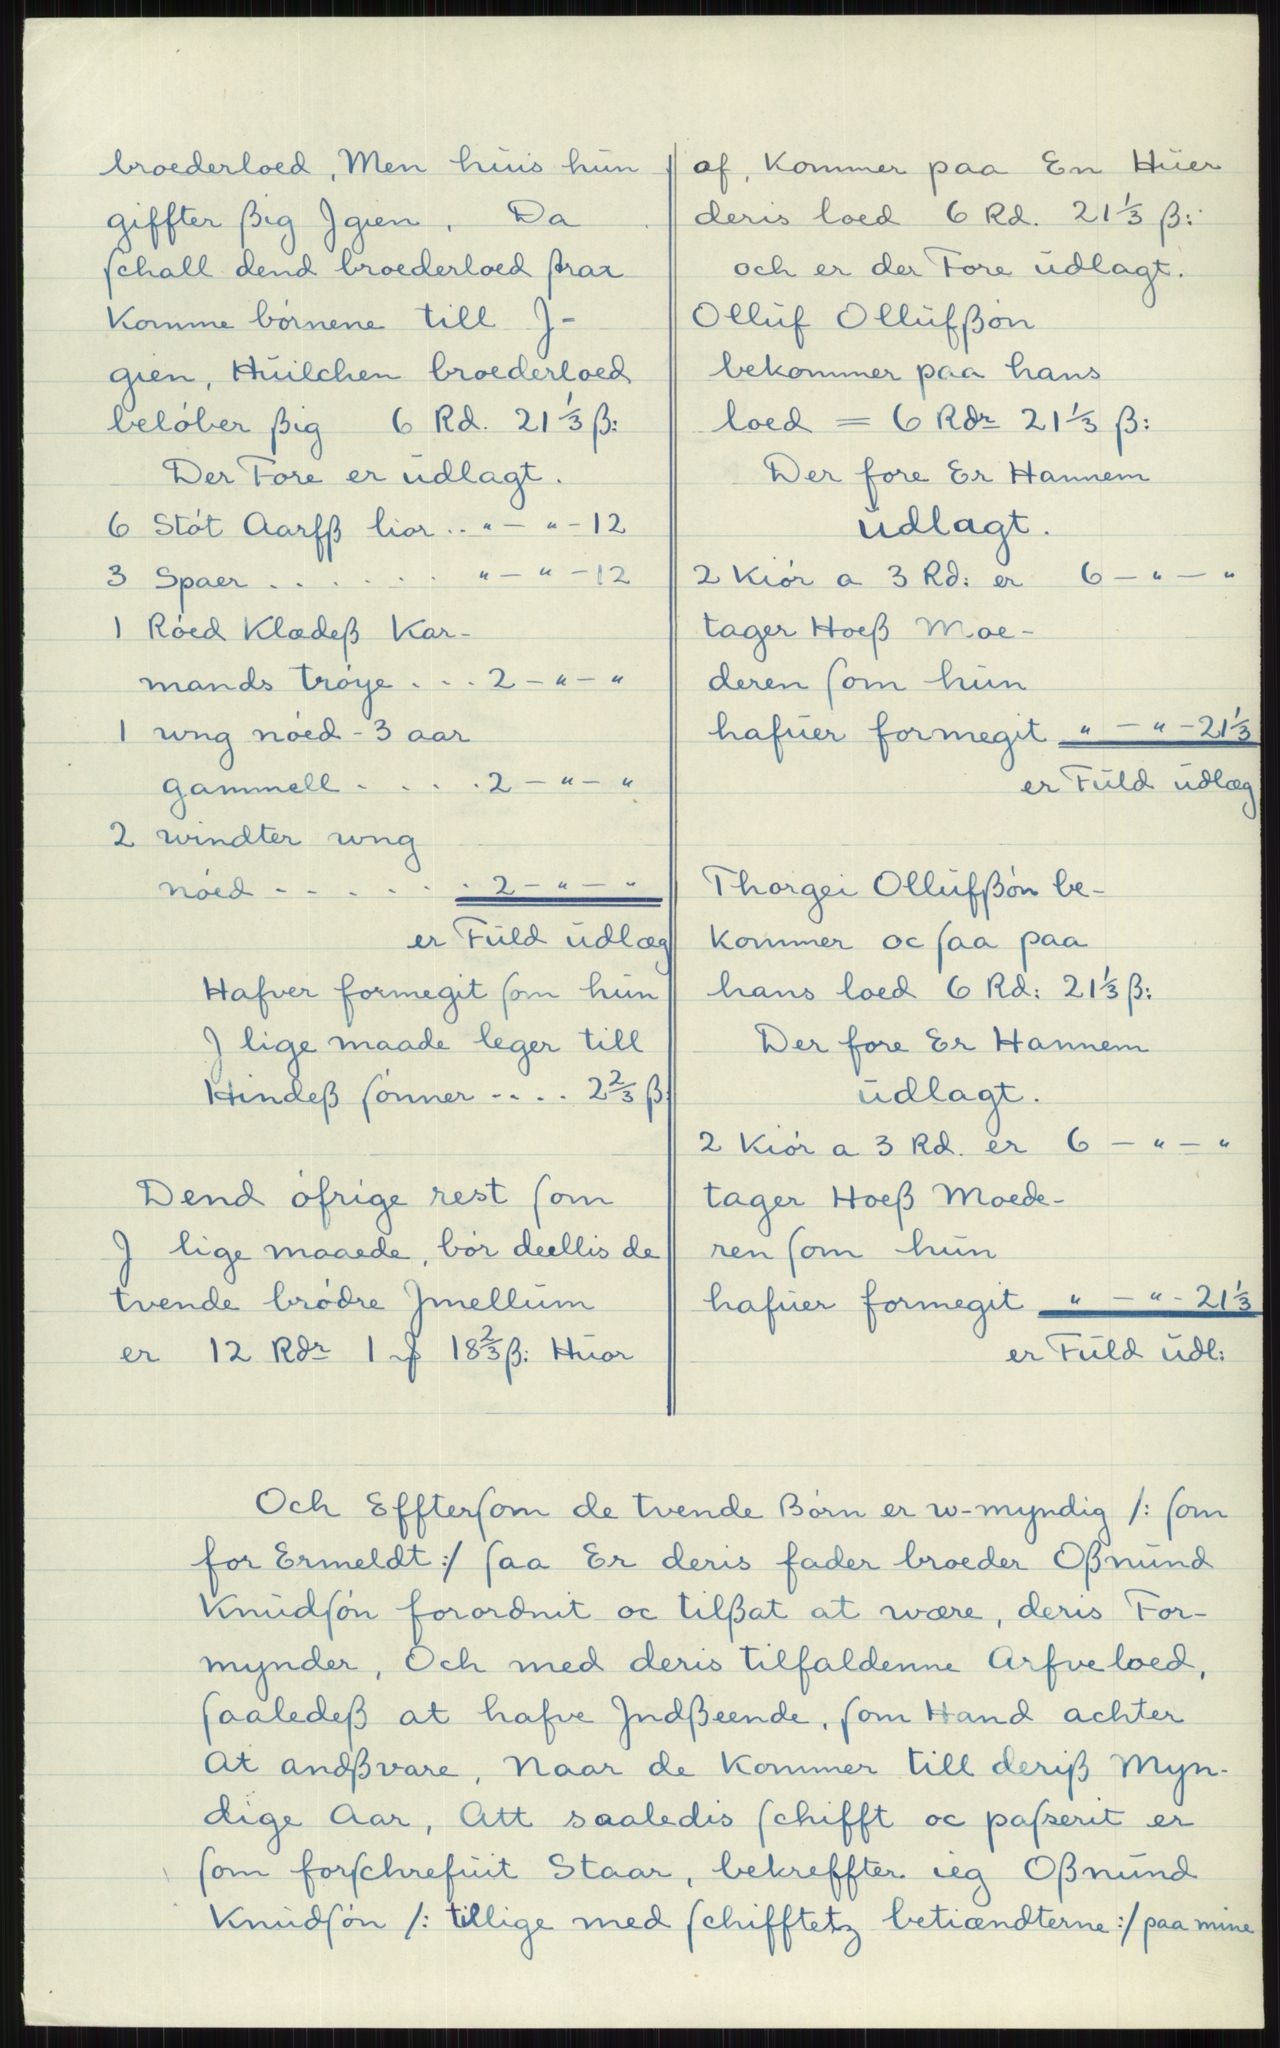 broederloed, Men huis hun
giffter ßig Jgien, Da
schall dend broederloed strax
Komme børnene till J-
gien, Huilchen broederloed
beløber ßig 6 Rd. 21⅓ ß:
Der Fore er udlagt.
6 Støt Aarfß lior .. " - " - 12
3 Spaer . . . . . . " - " - 12
1 Røed Klædeß Kar-
mands trøye . . . 2 - " - "
1 ung nøed - 3 aar
gammell . . . . 2 - " - "
2 windter ung
nøed . . . . . . 2 - " - "
er Fuld udlæg
Hafver formegit som hun
J lige maade leger till
Hindeß sønner .... 2⅔ ß:
Dend øfrige rest som
J lige maaede, bør deellis de
tvende brødre Jmellum
er 12 Rdr 1 ₰ 18⅔ ß: Huor
af, Kommer paa En Huer
deris loed 6 Rd. 21⅓ ß:
och er der Fore udlagt.
Olluf Ollufßøn
bekommer paa hans
loed = 6 Rdr 21⅓ ß:
Der fore Er Hannem
udlagt.
2 Kiør a 3 Rd: er 6 - " - "
tager Hoeß Moe-
deren som hun
hafuer formegit " - " - 21⅓
er Fuld udlæg
Thorgei Ollufßøn be-
kommer oc saa paa
hans loed 6 Rd: 21⅓ ß:
Der fore Er Hannem
udlagt.
2 Kiør a 3 Rd. er 6 - " - "
tager Hoeß Moede-
ren som hun
hafuer formegit " - " - 21⅓
er Fuld udl:
Och Efftersom de tvende Børn er w-myndig /: som
for Ermeldt :/ saa Er deris fader broeder Oßnund
Knudsøn forordnit oc tilßat at wære, deris For-
mynder, Och med deris tilfaldenne Arfveloed,
saaledeß at hafve Jndßeende, som Hand achter
At andßvare, Naar de Kommer till deriß Myn-
dige Aar, Att saaledis schifft oc passerit er
som forschrefuit Staar, bekreffter ieg Oßnund
Knudsøn /: tillige med schifftetz betiændterne :/ paa mine